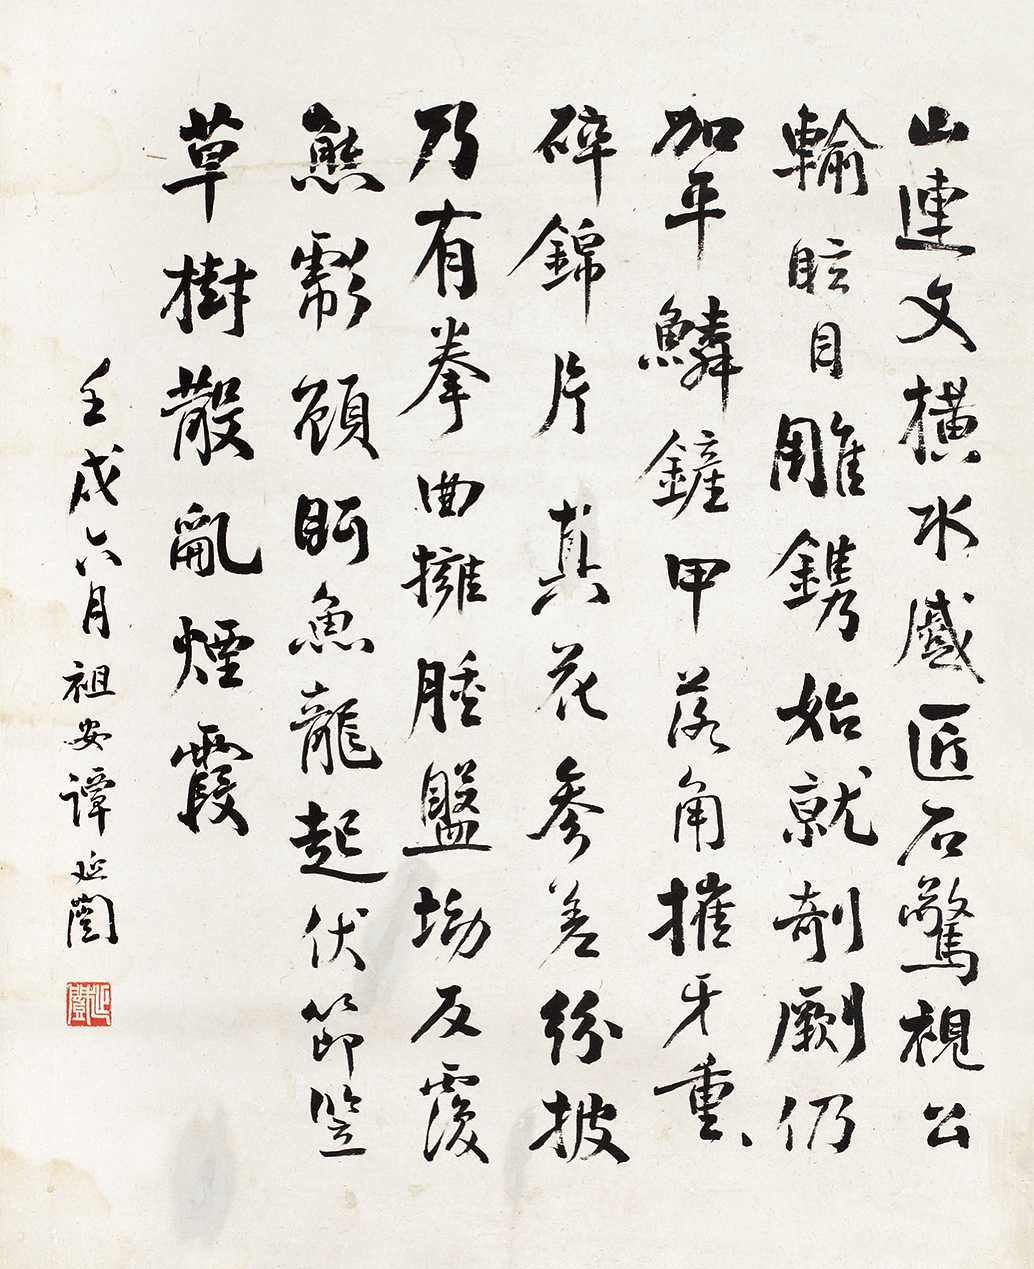 山連文橫水蹙匠石驚視公
輸眩目雕鐫始就剞劂仍
加平鱗鏟甲落角摧牙重、
碎錦片真花參差紛披
乃有拳曲擁腫盤坳反覆
熊彪顧眄魚龍起伏節竪
草樹散亂煙霞
壬戌六月祖安譚延闓
延闓